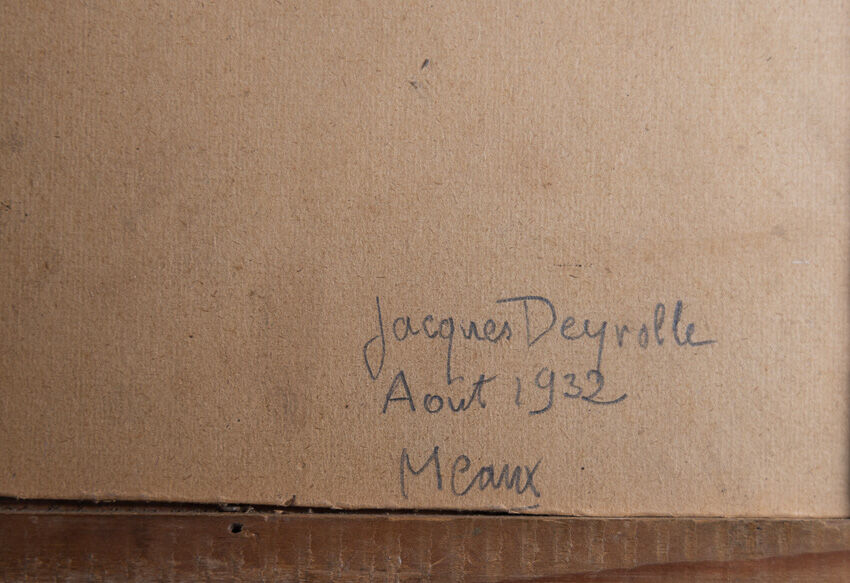 Jacques Deyrolle
Aout 1932
Meaux